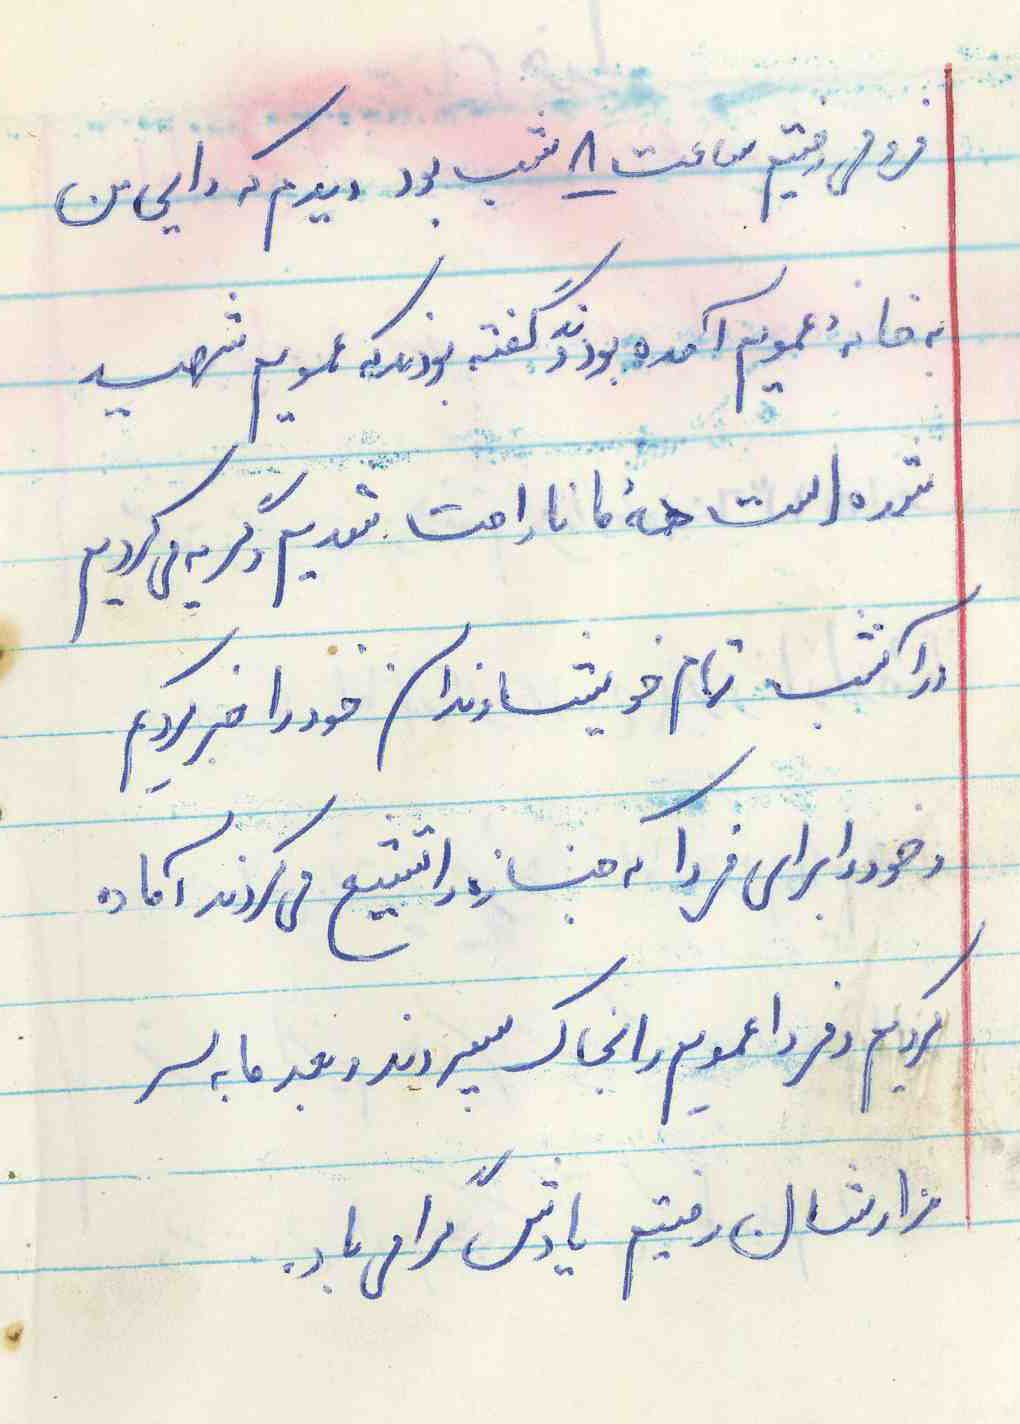 فرو می رفتیم ساعت ۸ شب بود دیدم که دایی من
به خانهٔ عمویم آمده بودند و گفته بودند که عمویم شهید
شده است همهٔ ما ناراحت شدیم و گریه می کردیم
در آن شب تمام خویشاوندان خود را خبر کردیم
و خود را برای فردا که جنازه را تشییع می کردند آماده
کردیم و فردا عمویم را بخاک سپردند و بعد ما به سر
مزارشان رفتیم یادش گرامی باد.